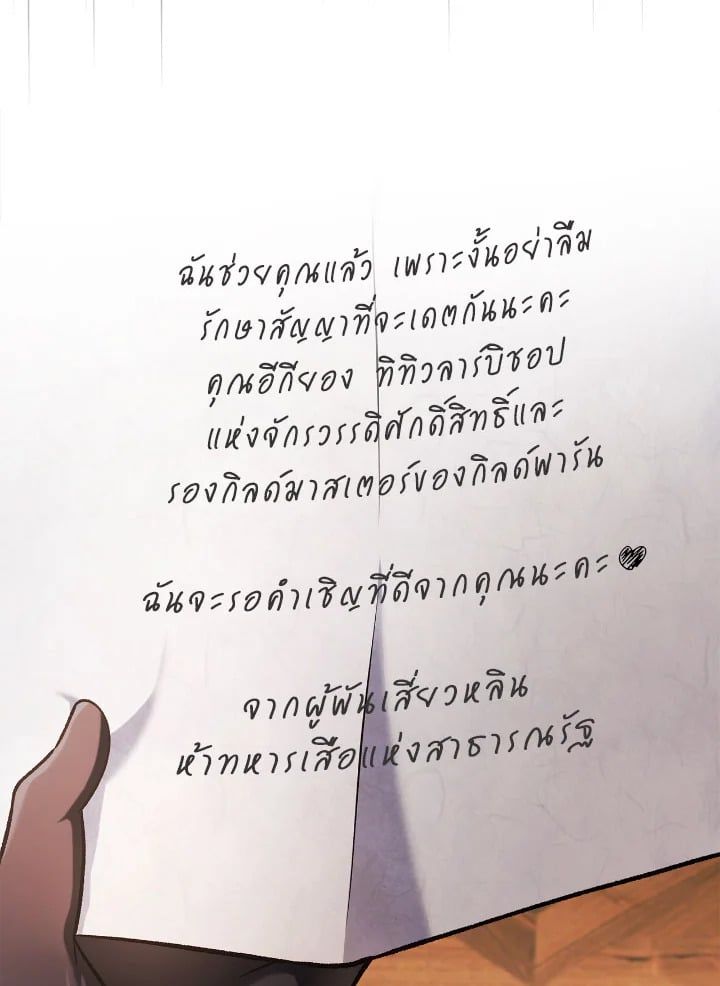 ฉันช่วยคุณแล้ว เพราะงั้นอย่าลืม
รักษาสัญญาที่จะเดตกันนะคะ
คุณอีกียอง ทิทิวลาร์บิชอป
แห่งจักรวรรดิศักดิ์สิทธิ์และ
รองกิลด์มาสเตอร์ของกิลด์พารัน
ฉันจะรอคำเชิญที่ดีจากคุณนะคะ♥
จากผู้พันเสี่ยวหลิน
ห้าทหารเสือแห่งสาธารณรัฐ